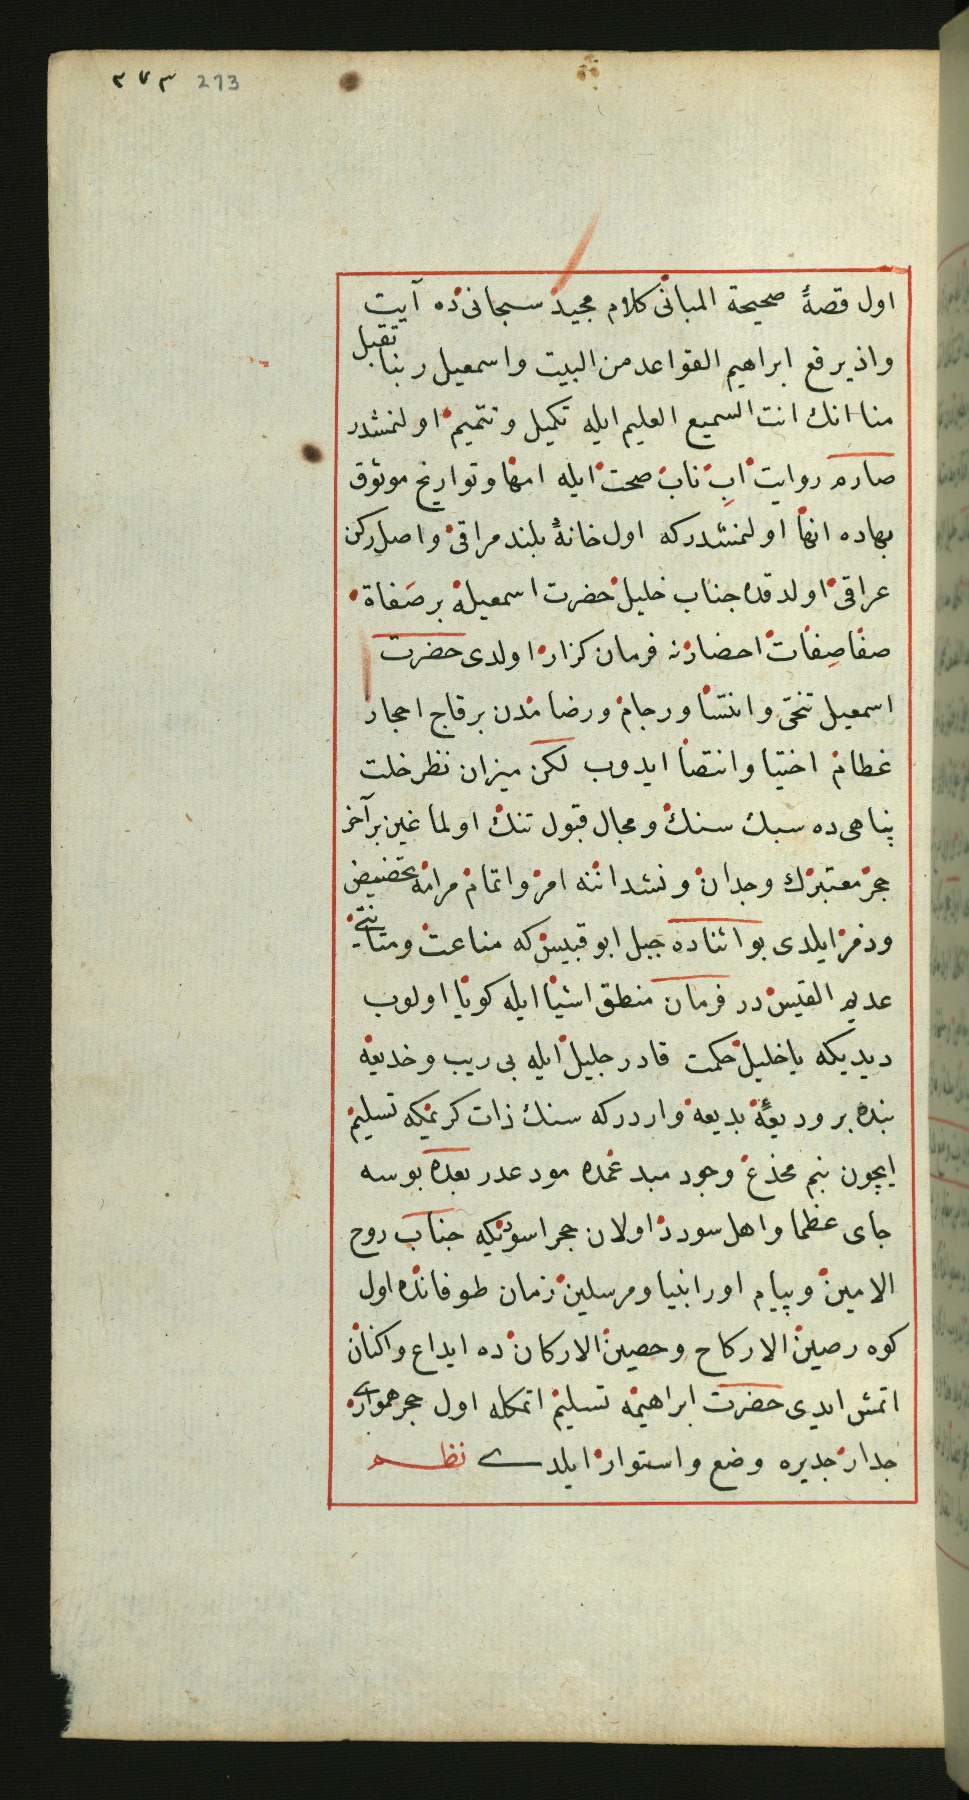 ٢٧٣ 273
اول قصهٔ صحیحة المبانی کلام مجید سبحانی ده آیت
واذ یرفع ابراهیم القواعد من البیت واسمعیل ربنا تقبل
منا انك انت السمیع العلیم ایله تکمیل وتتمیم اولنمشدر
صارم روایت اب ناب صحت ایله امها وتواریخ موثوق
بهاده انها اولنمشدرکه اول خانهٔ بلند مراقی واصل رکن
عراقی اولدقده جناب خلیل حضرت اسمعیله بر صفاة
صفا صفات احضارنه فرمان کزار اولدی حضرت
اسمعیل تنخی وانتسا ورجام ورضامدن بر قاج احجار
عظام اختیا وانتصا ایدوب لکن میزان نظر خلت
پناهی ده سبك سنك ومجال قبول تنك اولماغین بر آخر
حجر معتبرك وجدان ونشداننه امر واتمام مرامه تحضیض
وذمر ایلدی بو اثناده جبل ابو قبیس که مناعت ومتانتی
عدیم القیس در فرمان منطق اشیا ایله کویا اولوب
دیدیکه یا خلیل حکمت قادر جلیل ایله بی ریب وخدیعه
بنده بر ودیعهٔ بدیعه واردرکه سنك ذات کریمکه تسلیم
ایچون بنم مخدع وجود مبدعمده مودعدر بعده بوسه
جای عظما واهل سودد اولان حجر اسودیکه جناب روح
الامین وپیام اور انبیا ومرسلین زمان طوفانده اول
کوه رصین الارکاح وحصین الارکان ده ایداع واکنان
اتمش ایدی حضرت ابراهیمه تسلیم اتمکله اول حجر همواری
جدار جدیره وضع واستوار ایلدی نظم